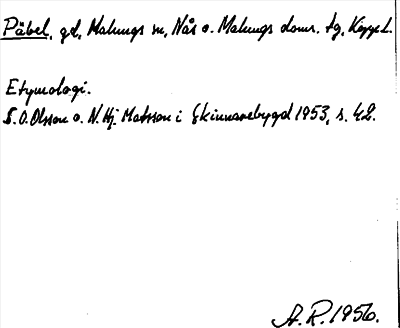 Päbel, gd, Malungs sn, Nås o. Malungs doms. tg, Kopp. L.
Etymologi.
S. O. Olsson o. N. Hj. Matsson i Skinnarebygd 1953, s. 42.
A. R. 1956.